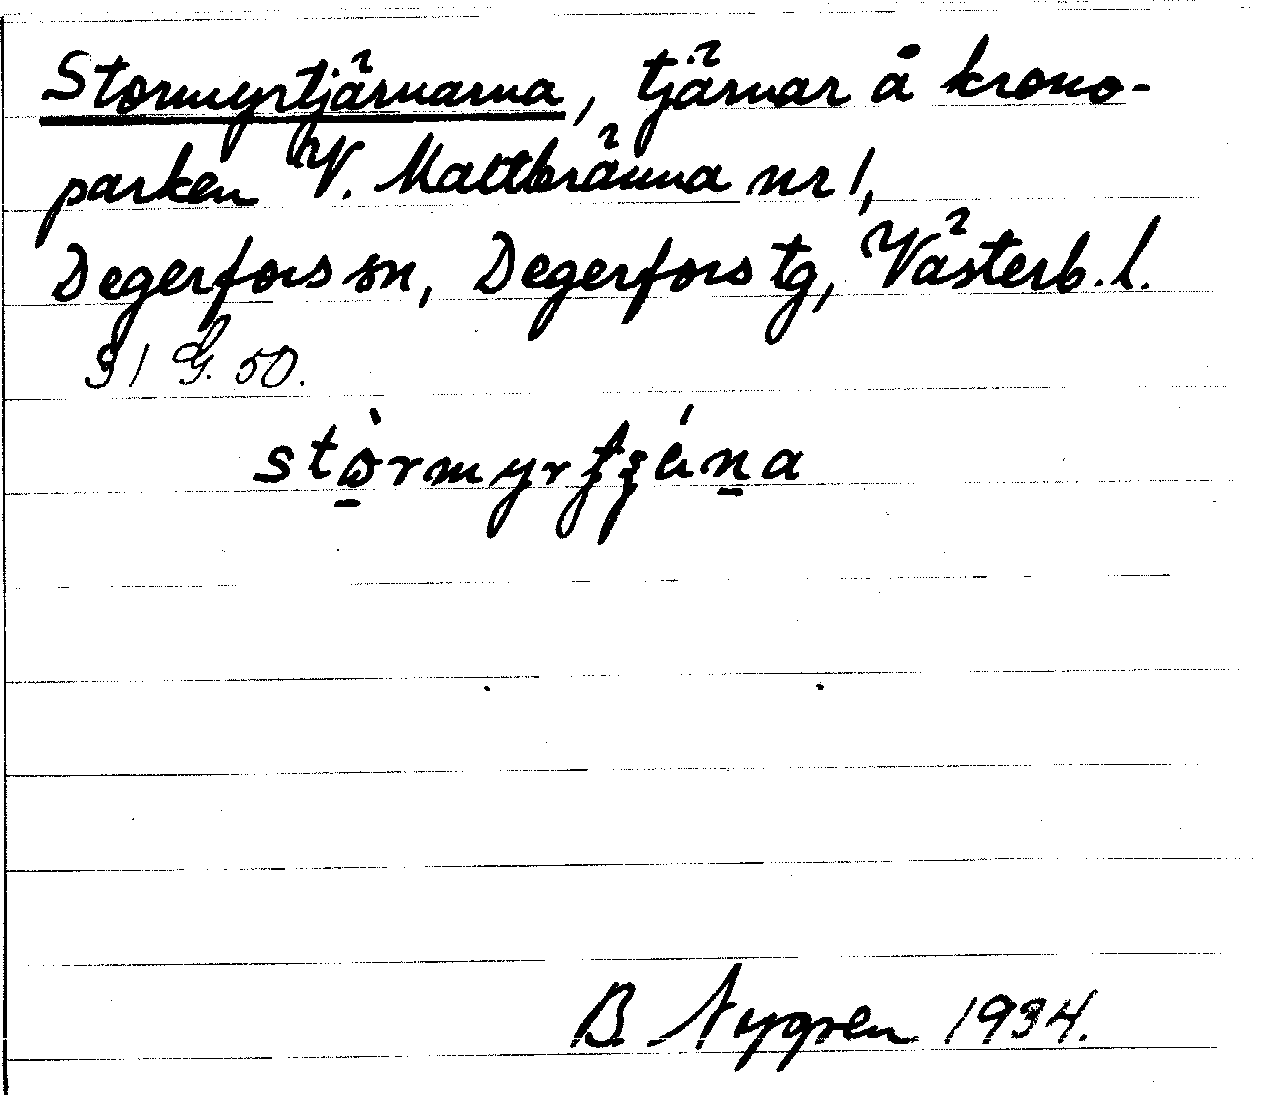 Stormyrtjärnarna, tjärnar å krono-
parken V. Mattbränna nr 1,
Degerfors sn, Degerfors tg, Västerb. l.
91 G. 50.
B. Nygren 1934.